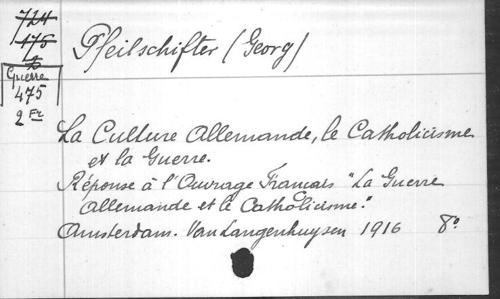 724
175
B
Guerre
475
2 Fr
Pfeilschifter (Georg)
La Culture Allemande, le Catholicisme
et la Guerre.
Réponse à l'Ouvrage Français "La Guerre
Allemande et le Catholicisme."
Amsterdam. Van Langenhuysen 1916 8°.